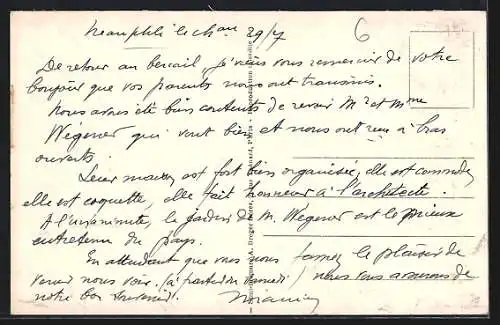 Neauphle le chau 29/7
6
De retour au bercail, je viens vous remercier de votre
bonjour que vos parents nous ont transmis.
Nous avons été bien contents de revoir Mr et Mme
Wégener qui vont bien et nous ont reçu à bras
ouverts.
Leur maison est fort bien organisée, elle est commode,
elle est coquette, elle fait honneur à l'architecte.
A l'unanimité, le jardin de M. Wégener est le mieux
entretenu du pays.
En attendant que vous nous fassiez le plaisir de
venir nous voir (à partir du samedi) nous vous assurons de
notre bon souvenir.